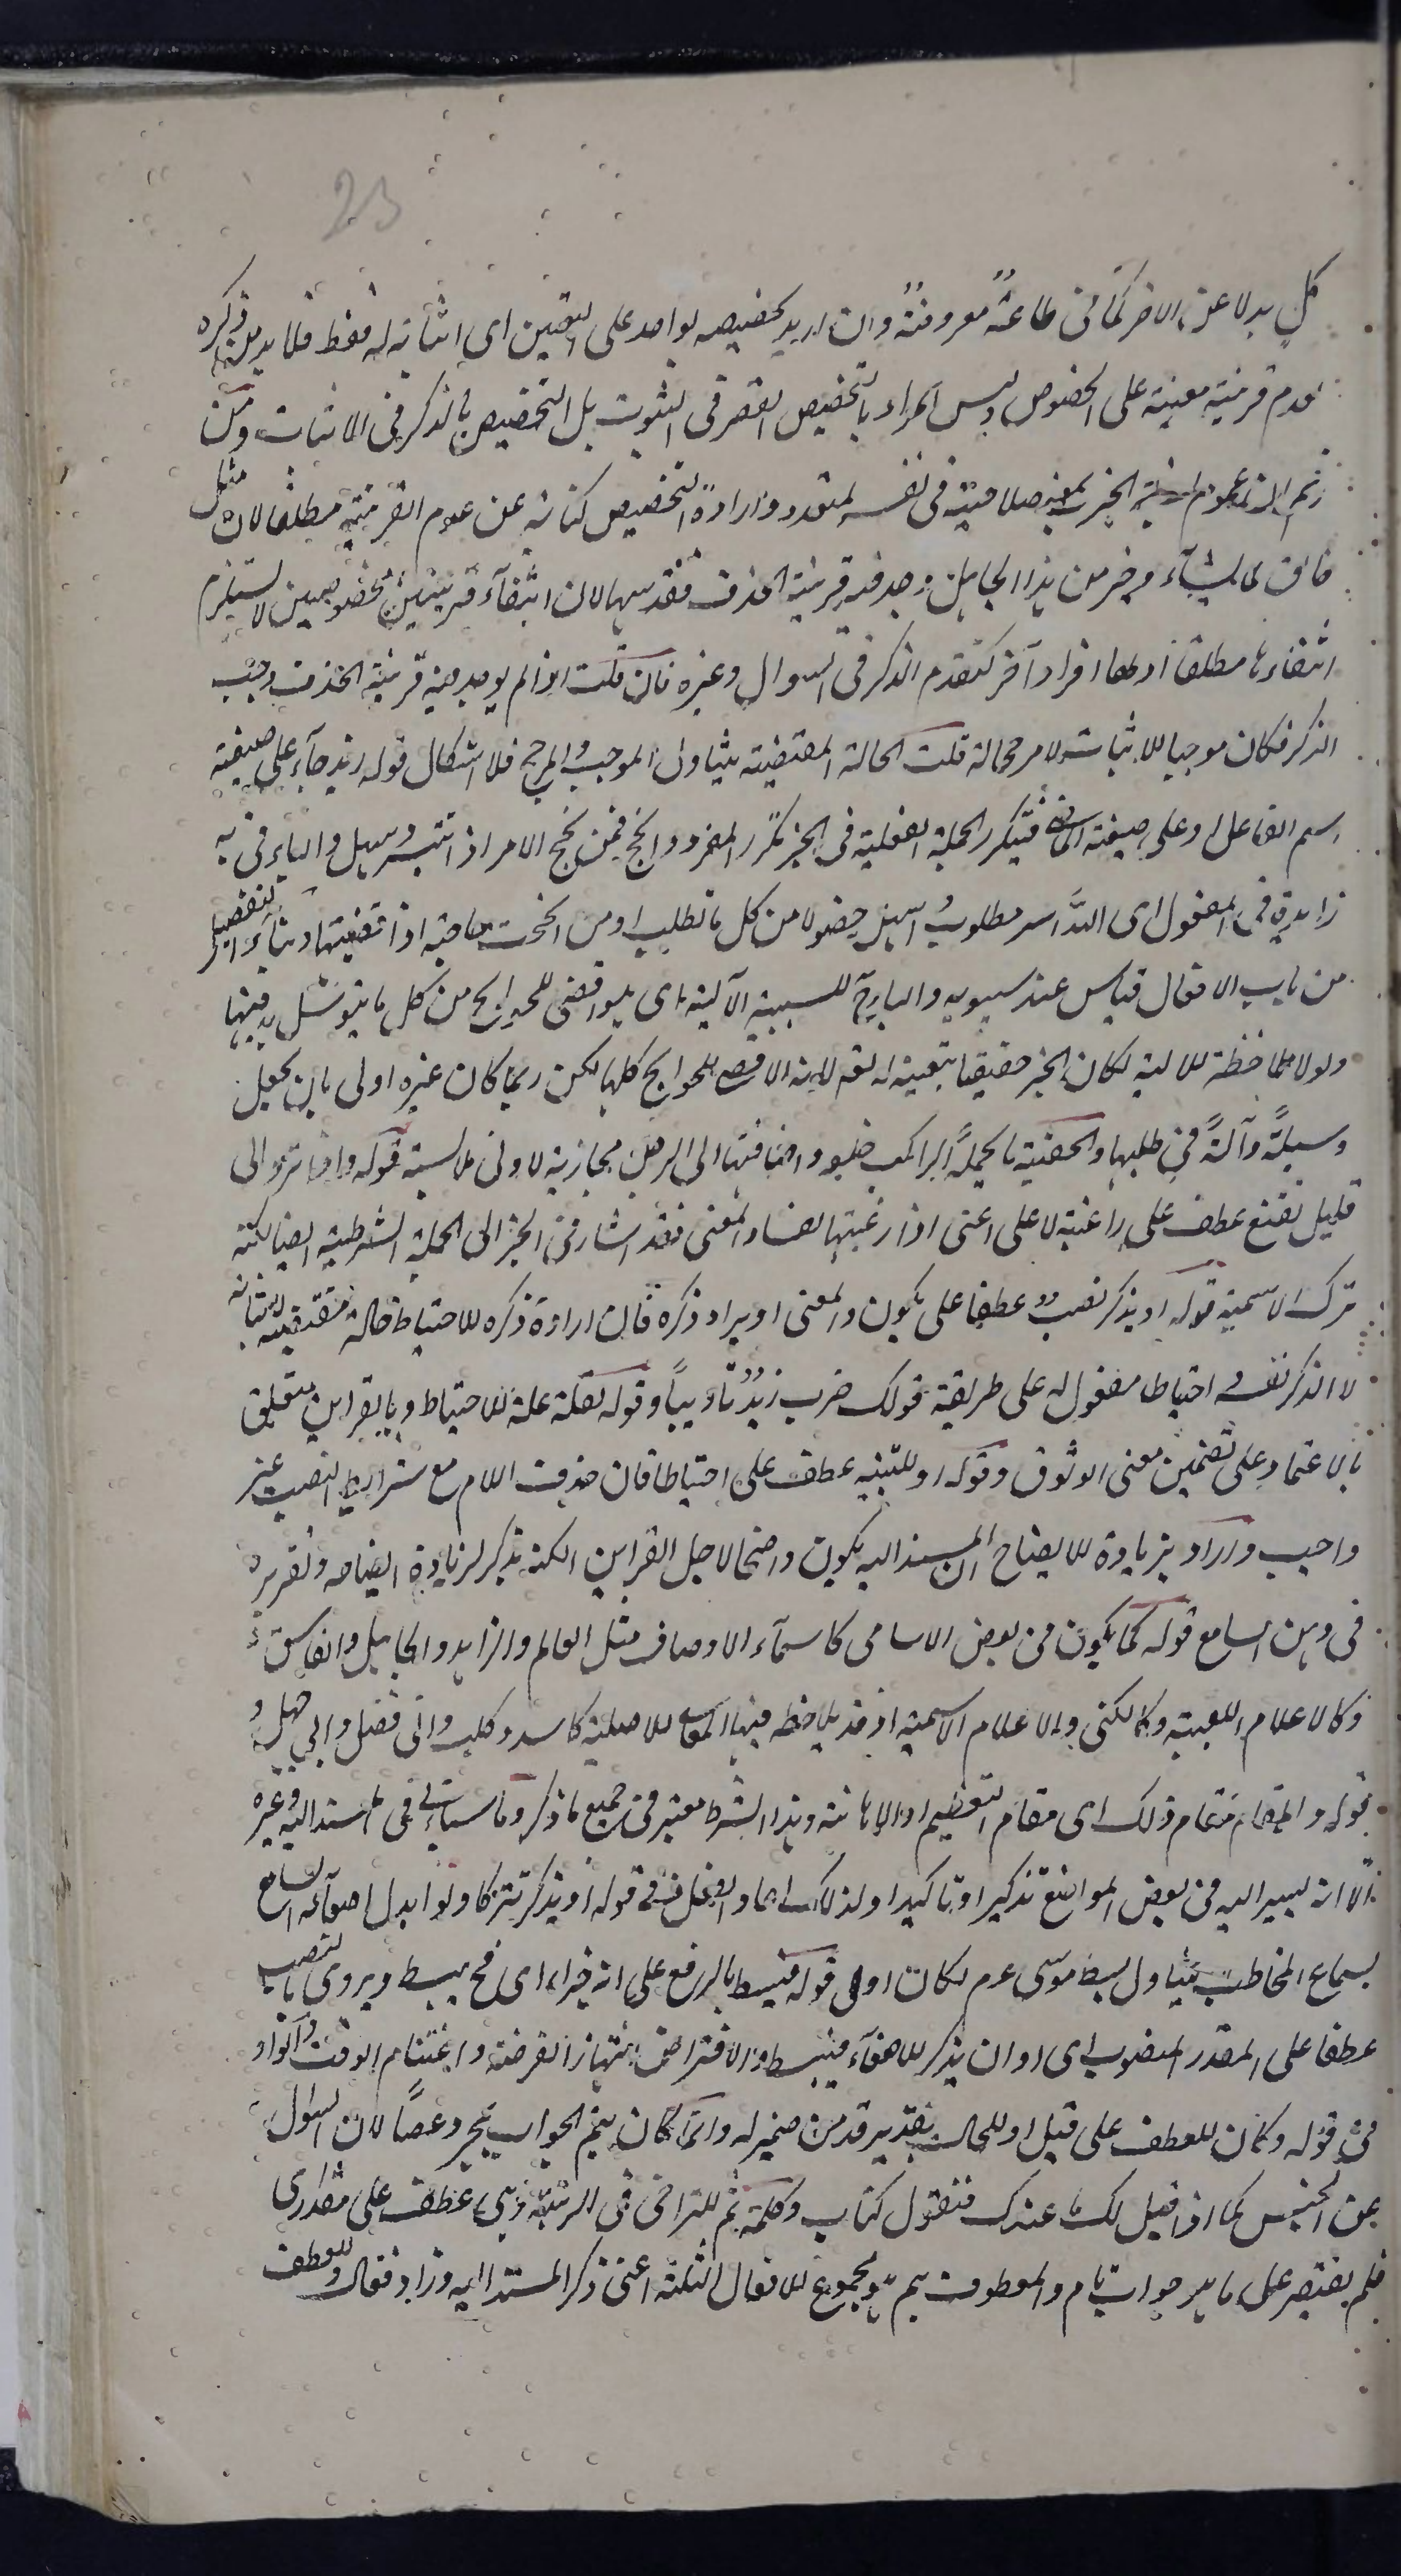 23
كل بدلا عن الاخر كما فى طاعة معروفة وان اريد تخصيصه بواحد على التعيين اى اثباته له فقط فلا بد من ذكره
لعدم قرينة معينة على الخصوص وليس المراد بالتخصيص القصر فى الثبوت بل التخصيص بالذكر فى الاثبات ومن
زعم ان عموم نسبة الخبر بمعنى صلاحيته فى نفسه لمتعدد وارادة التخصيص كناية عن عدم القرينة مطلقا لان مثل
خالق لما يشاء وخير من هذا الجاهل وجد فيه قرينة الحذف فقد سها لان انتفاء قرينتين مخصوصتين لا يستلزم
انتفاءها مطلقا اذ لها افراد آخر كتقدم الذكر فى السوال وغيره فان قلت اذا لم يوجد فيه قرينة الحذف وجب
الذكر فكان موجبا للاثبات لا مرجحا له قلت الحالة المقتضية يتناول الموجب والمرجح فلا اشكال قوله زيد جاء على صيغة
اسم الفاعل او على صيغة الماضى فتكرر الجملة الفعلية فى الخبر تكرر المفرد وانجح فمن نجح الامر اذا تيسر وسهل والباء فى به
زايدة فى المفعول اى الله ايسر مطلوب واسهل حضولا من كل ما تطلب او من انجحت حاجته اذا قضيتها وبناء التفضيل
من باب الافعال قياس عند سيبويه والباء للسببية الآلية اى هو اقضى للحوايج من كل ما يتوسل به فيها
ولولا ملاحظة الالية لكان الخبر حقيقا بتعينه له تعالى لانه الاقضى للحوايج كلها لكن ربما كان غيره اولى بان يجعل
وسيلة وآلة فى طلبها والحقيبة ما يحمله الراكب خلفه واضافتها الى الرحل مجازية لادنى ملابسة قوله واذا ترد الى
قليل تقنع عطف على راغبة لا على اعنى اذا رغبتها لفساد المعنى فقد اشار فى الخبر الى الجملة الشرطية ايضا لكنه
ترك الاسمية قوله او يذكر نصب عطفا على يكون والمعنى او يراد ذكره فان ارادة ذكره للاحتياط حالة مقتضية لاثباته
لا الذكر نفسه احتياطا مفعول له على طريقة قولك ضرب زيد تاديبا وقوله لقلة علة للاحتياط وبالقراين متعلق
بالاعتماد على تضمين معنى الوثوق وقوله او للتنبيه عطف على احتياطا فان حذف اللام مع شرايط النصب غير
واجب واراد بزيادة الايضاح ان المسند اليه يكون واضحا لاجل القراين لكنه يذكر لزيادة ايضاحه وتقريره
فى ذهن السامع قوله كما يكون فى بعض الاسامى كاسماء الاوصاف مثل العالم والزاهد والجاهل والفاسق
وكالاعلام اللقبية وكالكنى والاعلام الاسمية اذ قد يلاحظ فيها المعانى الاصلية كاسد وكلب وابى فضل وابى جهل
قوله والمقام مقام ذلك اى مقام التعظيم او الاهانة وهذا الشرط معتبر فى جميع ما ذكر وما سياتى فى المسند اليه وغيره
الا انه يسير اليه فى بعض المواضع تذكيرا وتاكيدا ولذلك اعاد الفعل فى قوله او يذكر تبركا ولو ابدل اصغاء السامع
بسماع المخاطب يتناول بسط موسى عم لكان اولى قوله فيبسط بالرفع على انه خبر اى فح يبسط ويروى بالنصب
عطفا على المقدر المنصوب اى او ان يذكر للاصغاء فيبسط والافتراص انتهاز الفرصة واغتنام الوقت والواو
فى قوله وكان للعطف على قيل او للحال بتقدير قد من ضمير له وانما كان يتم الجواب بمجرد عصا لان السؤال
عن الجنس كما اذا قيل لك ما عندك فتقول كتاب وكلمة ثم للتراخى فى الرتبة وهى عطف على مقدر اى
فلم يقتصر على ما هو جواب تام والمعطوف بثم هو مجموع الافعال الثلثة اعنى ذكر المسند اليه وزاد فقال والعطف